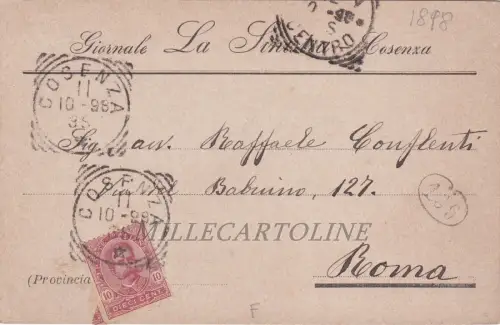 1898
Giornale La Sin Cosenza
COSENZA
11
10-98
Sig. avv. Raffaele Conflenti
Via del Babuino, 127.
COSENZA
11
10-98
MILLECARTOLINE
Roma
(Provincia
10 10
F